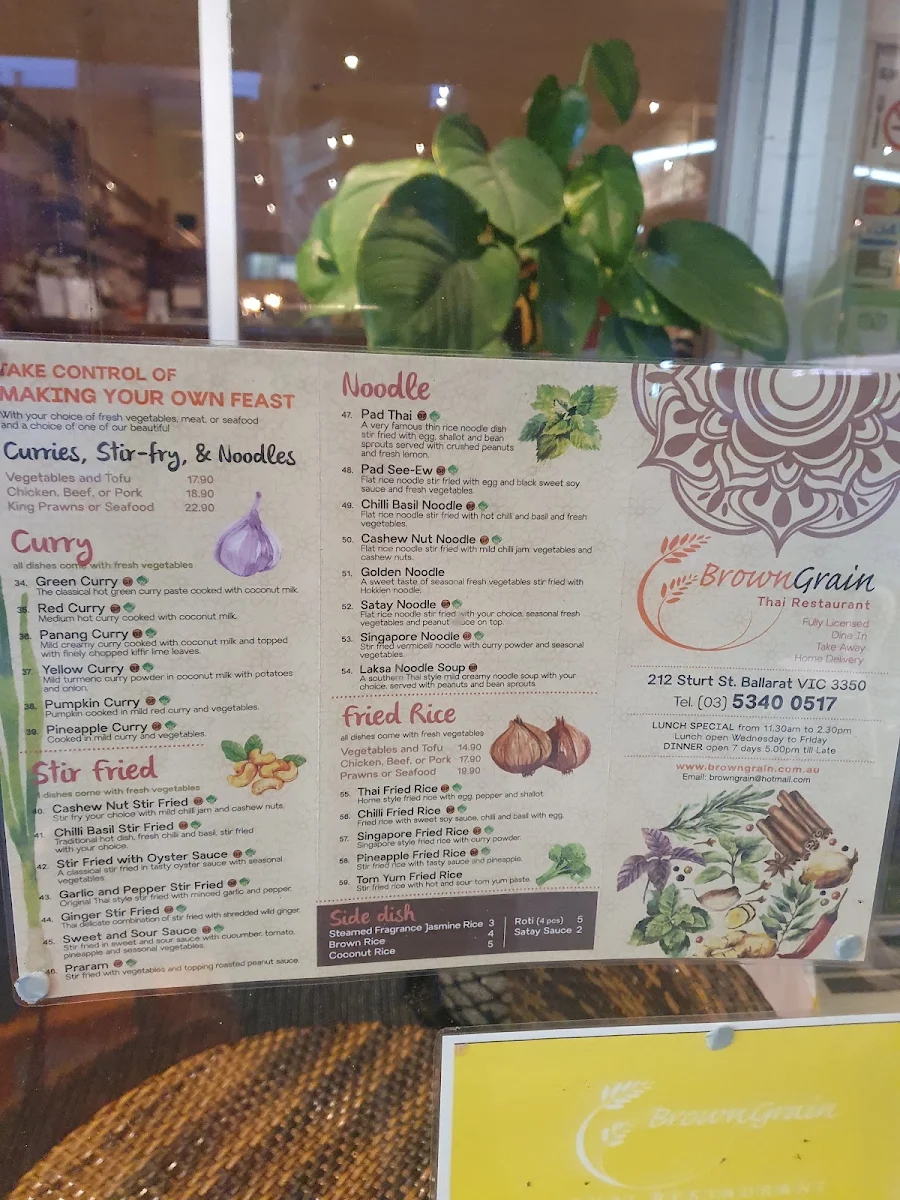 TAKE CONTROL OF
MAKING YOUR OWN FEAST
With your choice of fresh vegetables, meat, or seafood
and a choice of one of our beautiful
Curries, Stir-fry, & Noodles
Vegetables and Tofu 17.90
Chicken, Beef, or Pork 18.90
King Prawns or Seafood 22.90
Curry
all dishes come with fresh vegetables
34. Green Curry
The classical hot green curry paste cooked with coconut milk.
35. Red Curry
Medium hot curry cooked with coconut milk.
36. Panang Curry
Mild creamy curry cooked with coconut milk and topped
with finely chopped kiffir lime leaves.
37. Yellow Curry
Mild turmeric curry powder in coconut milk with potatoes
and onion.
38. Pumpkin Curry
Pumpkin cooked in mild red curry and vegetables.
39. Pineapple Curry
Cooked in mild curry and vegetables.
Stir fried
dishes come with fresh vegetables
40. Cashew Nut Stir Fried
Stir fry your choice with mild chili jam and cashew nuts.
41. Chilli Basil Stir Fried
Traditional hot dish, fresh chili and basil, stir fried
with your choice.
42. Stir Fried with Oyster Sauce
A classical stir fried in tasty oyster sauce with seasonal
vegetables.
43. Garlic and Pepper Stir Fried
Original Thai style stir fried with minced garlic and pepper.
44. Ginger Stir Fried
Thai delicate combination of stir fried with shredded wild ginger.
45. Sweet and Sour Sauce
Stir fried in sweet and sour sauce with cucumber, tomato,
pineapple and seasonal vegetables.
46. Praram
Stir fried with vegetables and topping roasted peanut sauce.
Noodle
47. Pad Thai
A very famous thin rice noodle dish
stir fried with egg, shallot and bean
sprouts served with crushed peanuts
and fresh lemon.
48. Pad See-Ew
Flat rice noodle stir fried with egg and black sweet soy
sauce and fresh vegetables.
49. Chilli Basil Noodle
Flat rice noodle stir fried with hot chilli and basil and fresh
vegetables.
50. Cashew Nut Noodle
Flat rice noodle stir fried with mild chili jam, vegetables and
cashew nuts.
51. Golden Noodle
A sweet taste of seasonal fresh vegetables stir fried with
Hokkien noodle.
52. Satay Noodle
Flat rice noodle stir fried with your choice, seasonal fresh
vegetables and peanut sauce on top.
53. Singapore Noodle
Stir fried vermicelli noodle with curry powder and seasonal
vegetables.
54. Laksa Noodle Soup
A southern Thai style mild creamy noodle soup with your
choice, served with peanuts and bean sprouts.
Fried Rice
all dishes come with fresh vegetables
Vegetables and Tofu 14.90
Chicken, Beef, or Pork 17.90
Prawns or Seafood 19.90
55. Thai Fried Rice
Home style fried rice with egg, pepper and shallot.
56. Chilli Fried Rice
Fried rice with sweet soy sauce, chilli and basil with egg.
57. Singapore Fried Rice
Singapore style fried rice with curry powder.
58. Pineapple Fried Rice
Stir fried rice with tasty sauce and pineapple.
59. Tom Yum Fried Rice
Stir fried rice with hot and sour tom yum paste.
Side dish
Steamed Fragrance Jasmine Rice 3
Brown Rice 4
Coconut Rice 5
Roti (4 pcs) 5
Satay Sauce 2
BrownGrain
Thai Restaurant
Fully Licensed
Dine In
Take Away
Home Delivery
212 Sturt St. Ballarat VIC 3350
Tel. (03) 5340 0517
LUNCH SPECIAL from 11.30am to 2.30pm
Lunch open Wednesday to Friday
DINNER open 7 days 5.00pm till Late
www.browngrain.com.au
Email: browngrain@hotmail.com
BrownGrain